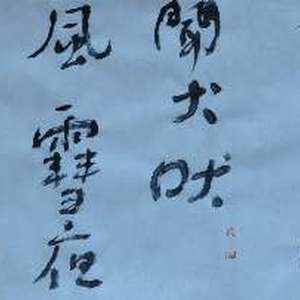 聞犬吠
風雪夜